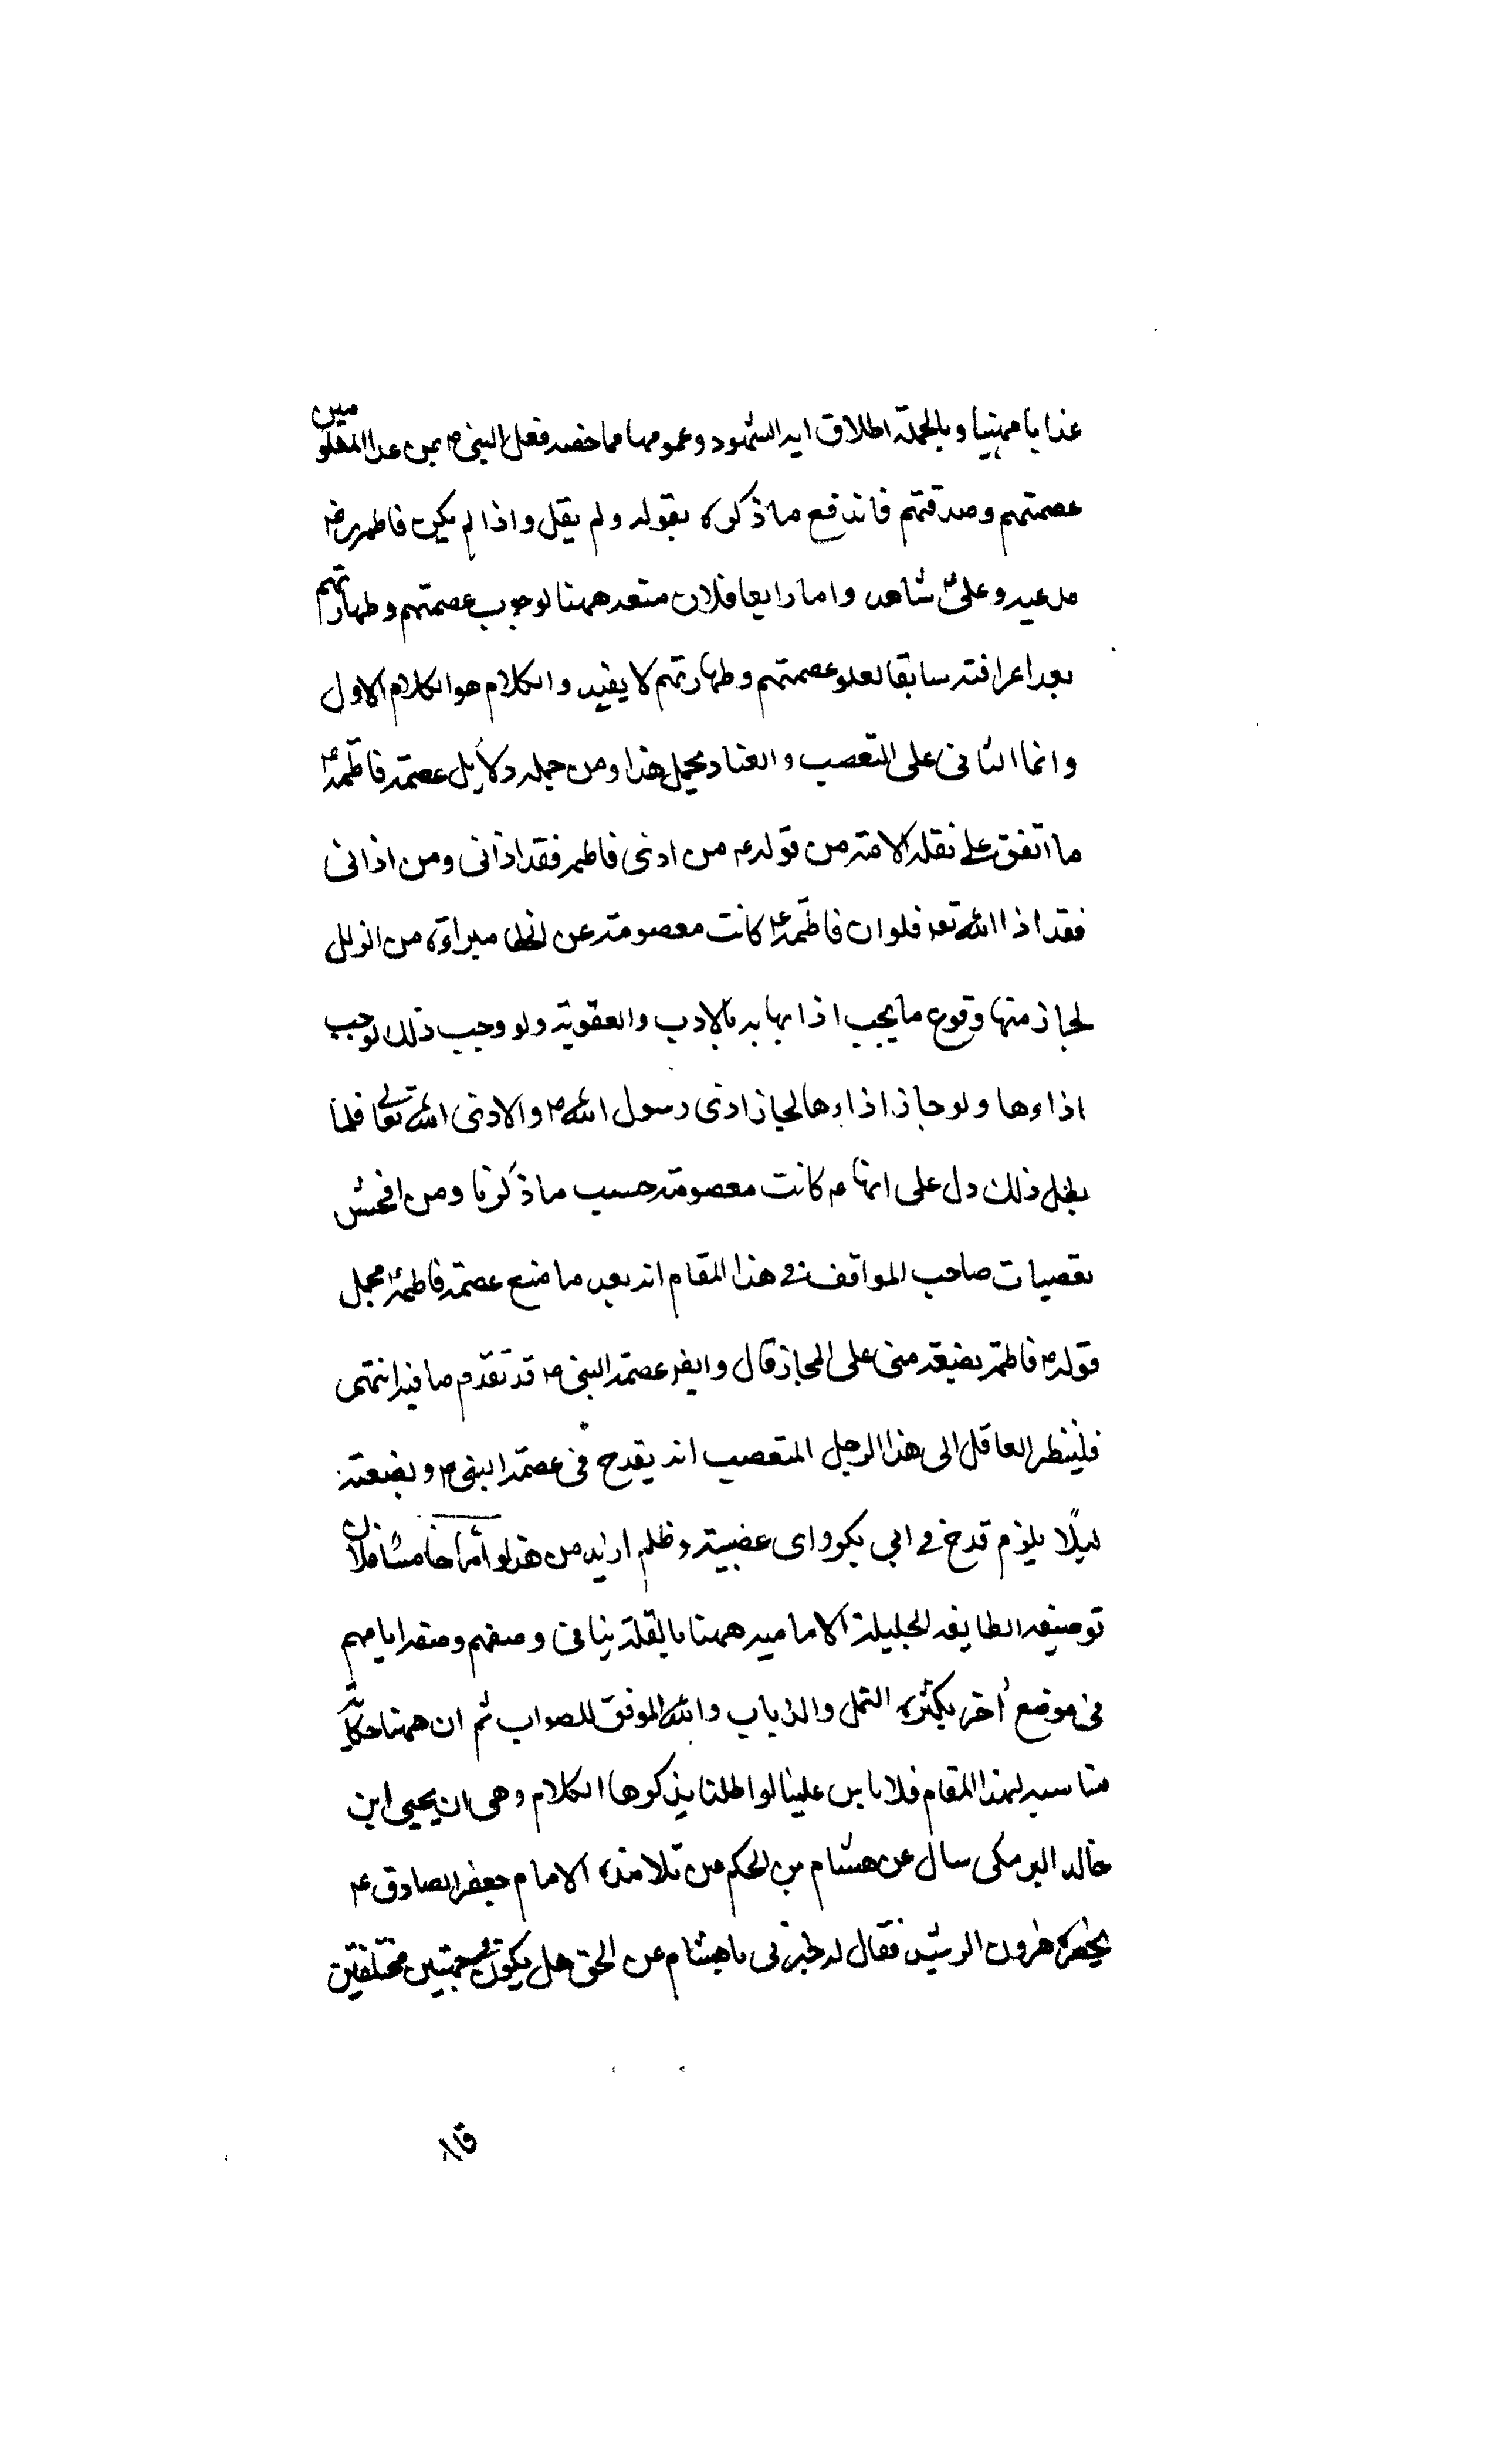 عذابا مهينا وبالجملة اطلاق اية الشهود وعمومها مما خصه فعل النبي ص بمن عدا المعلومين
عصمتهم وصدقهم فاندفع ما ذكره بقوله ولم يقل واذا لم يكن فاطمه رض
مدعيه وعلي ع شاهد واما رابعا فلان منعه ههنا لوجوب عصمتهم وطهارتهم
بعد اعرافته سابقا لعلو عصمتهم وطهارتهم لا يفيد والكلام هو الكلام الاول
وانما الثاني على التعصب والعناد محمل هذا ومن جمله دلايل عصمة فاطمة ع
ما اتفق على نقله الامة من قوله ع من اذى فاطمه فقد اذاني ومن اذاني
فقد اذا الله تعه فلو ان فاطمة ع كانت معصومة عن الخطا مبراءة من الزلل
لجاز منها وقوع ما يجب اذا بها به بالادب والعقوبة ولو وجب ذلك لوجب
اذاءها ولو جاز اذاءها لجاز اذى رسول الله ص والاذى الله تعالى فلما
بطل ذلك دل على انها ع كانت معصومة حسب ما ذكرنا ومن افحش
تعصبات صاحب المواقف في هذا المقام انه بعد ما منع عصمة فاطمة ع محمل
قوله ص فاطمة بضعة مني على المجاز قال وايضه عصمة النبي ص قد تقدم ما فيه انتهى
فلينظر العاقل الى هذا الرجل المتعصب انه يقدح في عصمة النبي ص وبضعته
ليلا يلزم قدح في ابي بكر واى عصبية وظلم ازيد من هذا واما خامسا فلان
توصيفه الطايفه الجليلة الاماميه ههنا بالقلة ينافي وصفهم وصفه اياهم
في موضع اخر بكثرة النمل والذباب والله الموفق للصواب ثم ان ههنا حكاية
مناسبه لهذا المقام فلا باس علينا لو اطلنا بذكرها الكلام وهي ان يحيى ابن
خالد البرمكي سال عن هشام بن الحكم من تلامذة الامام جعفر الصادق ع
بحضرة هرون الرشيد فقال له اخبرني يا هشام عن الحق هل يكون في جهتين مختلفتين
قال